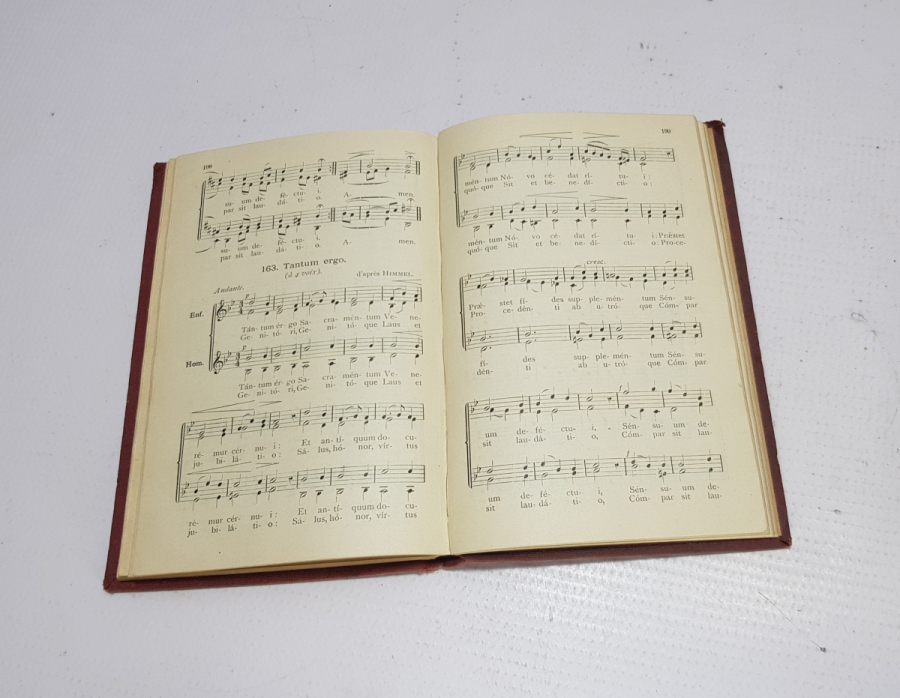 su- um de- fé- ctu- i. A- men.
par sit lau- dá- ti- o. A- men.
su- um de- fé- ctu- i.
par sit lau- dá- ti- o. A- men.
163. Tantum ergo.
(à 4 voix). d'après HIMMEL.
Andante.
Enf.
p
Tán- tum ér- go Sa- cra- mén- tum Ve- ne-
Ge- ni- tó- ri, Ge- ni- tó- que Laus et
Hom.
p
Tán- tum ér- go Sa- cra- mén- tum Ve- ne-
Ge- ni- tó- ri, Ge- ni- tó- que Laus et
ré- mur cér- nu- i: Et an- tí- quum do- cu-
ju- bi- lá- ti- o: Sá- lus, hó- nor, vír- tus
ré- mur cér- nu- i: Et an- tí- quum do- cu-
ju- bi- lá- ti- o: Sá- lus, hó- nor, vír- tus
199
mén- tum Nó- vo cé- dat rí- tu- i:
quó- que Sit et be- ne- dí- cti- o:
mén- tum Nó- vo cé- dat rí- tu- i: Præstet
quó- que Sit et be- ne- dí- cti- o: Pro-ce-
cresc.
Præ- stet fí- des sup- ple- mén- tum Sén- su-
Pro- ce- dén- ti ab u- tró- que Cóm- par
fí- des sup- ple- mén- tum Sén- su-
dén- ti ab u- tró- que Cóm- par
f
um de- fé- ctu- i, Sén- su- um de-
sit lau- dá- ti- o, Cóm- par sit lau-
f
um de- fé- ctu- i, Sén- su- um de-
sit lau- dá- ti- o, Cóm- par sit lau-